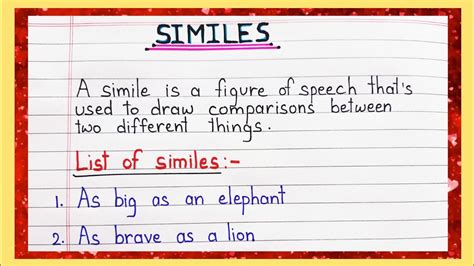 SIMILES
A simile is a figure of speech that's
used to draw comparisons between
two different things.
List of similes:-
1. As big as an elephant
2. As brave as a lion